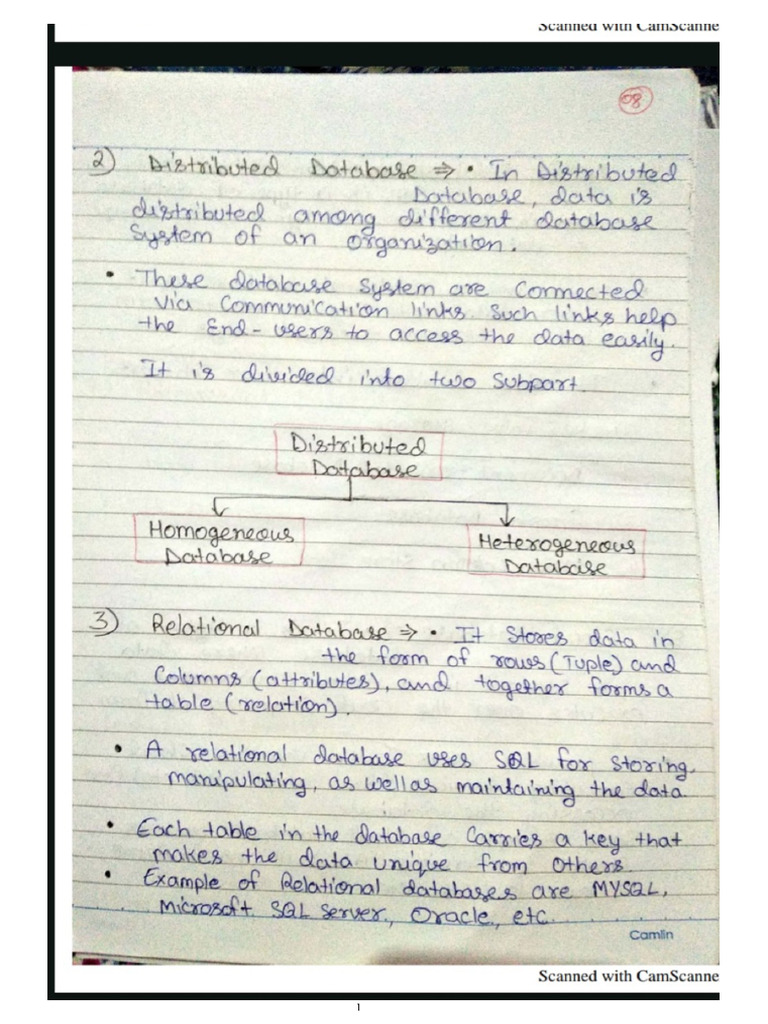 Scanned with CamScanne
08
2) Distributed Database ⇒ • In Distributed
Database, data is
distributed among different database
System of an organization.
• These database system are connected
via Communication links. Such links help
the End-users to access the data easily.
It is divided into two Subpart.
Distributed
Database
Homogeneous
Database
Heterogeneous
Database
3) Relational Database ⇒ • It Stores data in
the form of rows (Tuple) and
Columns (attributes), and together forms a
table (relation).
• A relational database uses SQL for storing,
manipulating, as well as maintaining the data.
• Each table in the database Carries a key that
makes the data unique from others.
• Example of Relational databases are MYSQL,
Microsoft SQL Server, Oracle, etc.
Camlin
Scanned with CamScanne
1